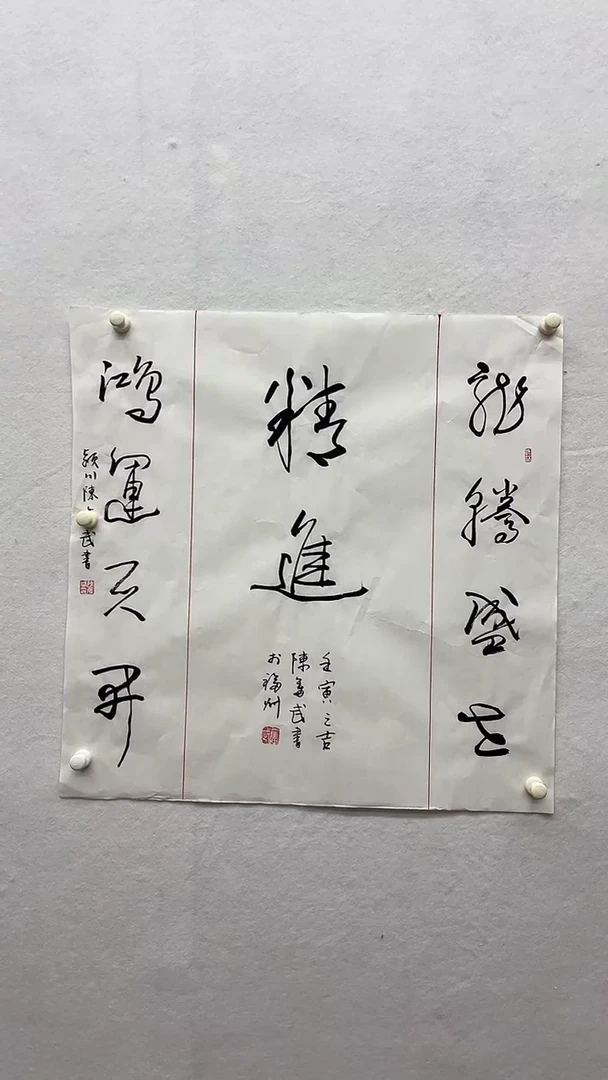 龍騰盛世
精進
壬寅之吉
陳武書
於福州
鴻運天開
潁川陳武書